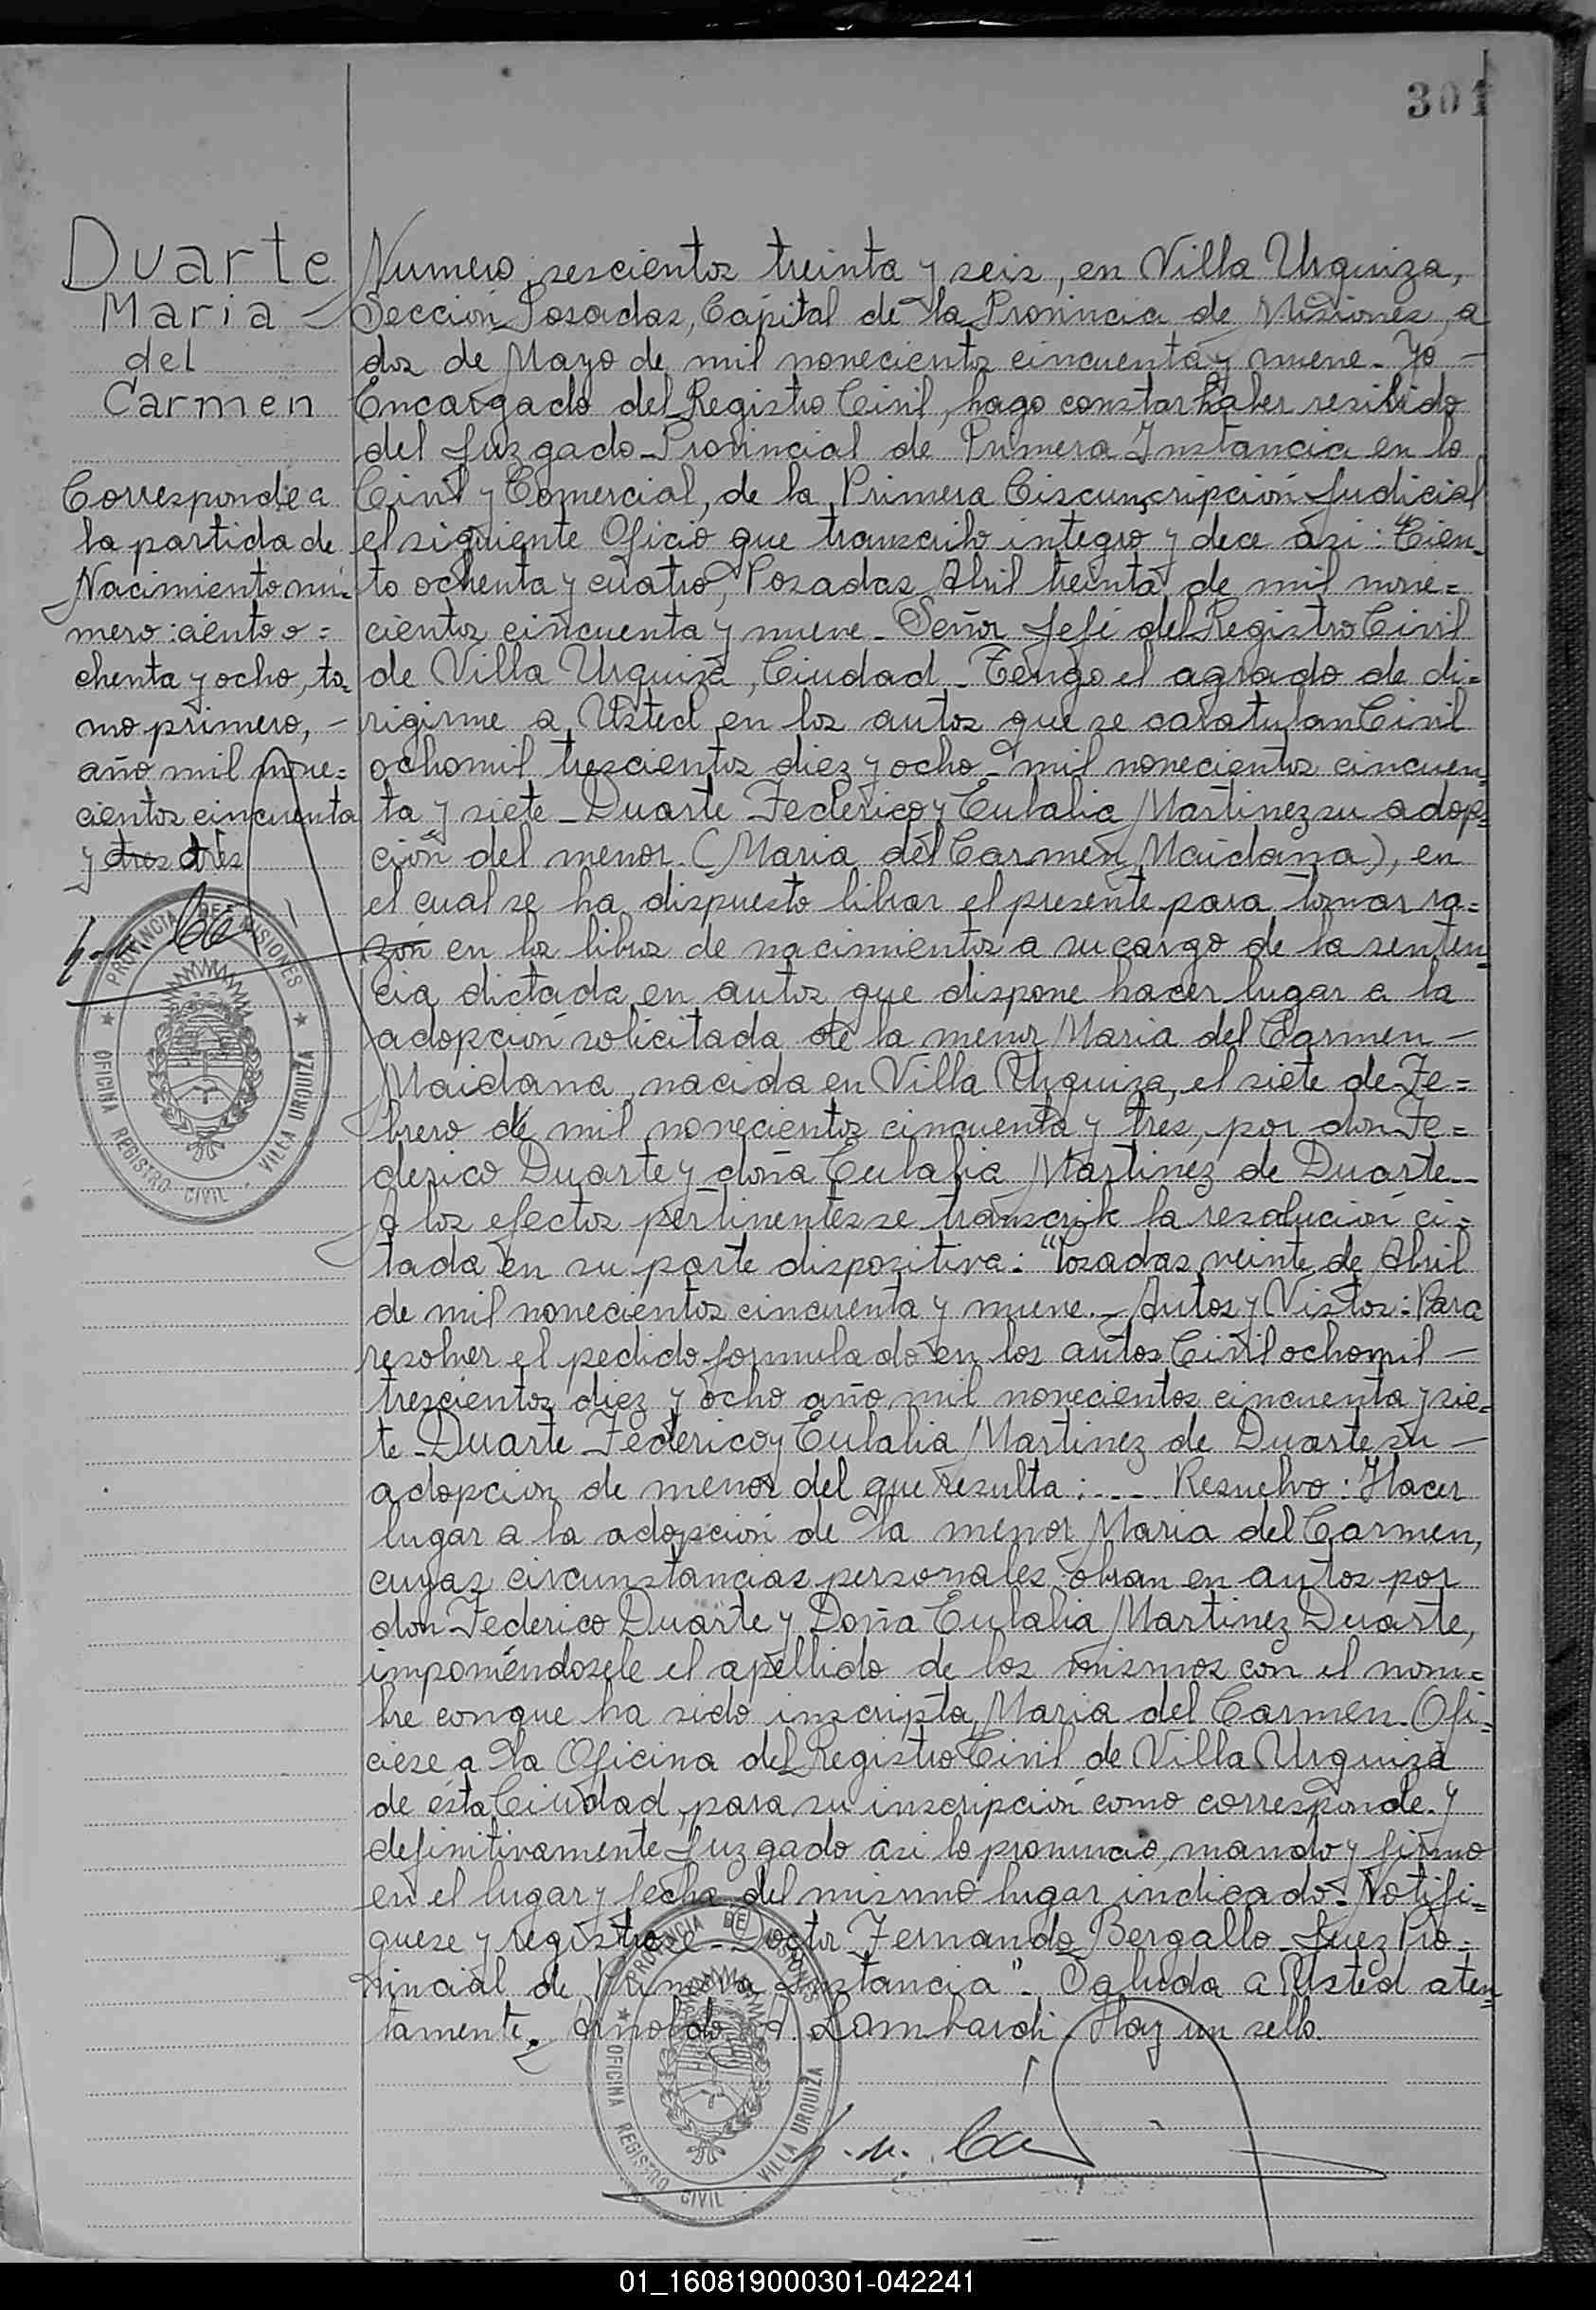 301
Duarte
Maria
del
Carmen
Corresponde a
la partida de
Nacimiento nú-
mero: ciento o=
chenta y ocho, to-
mo primero, -
año mil nove=
cientos cincuenta
y tres tres
PROVINCIA DE MISIONES
OFICINA REGISTRO CIVIL - VILLA URQUIZA
Numero, sescientos treinta y seis, en Villa Urquiza,
Sección Posadas, Capital de la Provincia de Misiones, a
dos de Mayo de mil novecientos cincuenta y nueve - Yo -
Encargado del Registro Civil, hago constar haber resibido
del Juzgado Provincial de Primera Instancia en lo
Civil y Comercial, de la Primera Ciscunscripción Judicial
el siguiente Oficio que transcribo integro y dece asi: Cien-
to ochenta y cuatro, Posadas, Abril treinta de mil nove=
cientos cincuenta y nueve - Señor Jefe del Registro Civil
de Villa Urquiza, Ciudad - Tengo el agrado de di=
rigirme a Usted en los autos que se caratulan Civil
ochomil trescientos diez y ocho - mil novecientos cincuen-
ta y siete - Duarte Federico y Eulalia Martinez su adop=
ción del menor (Maria del Carmen Maidana), en
el cual se ha dispuesto librar el presente para tomar ra=
zón en los libros de nacimientos a su cargo de la senten=
cia dictada en autos que dispone hacer lugar a la
adopción solicitada de la menor Maria del Carmen -
Maidana, nacida en Villa Urquiza, el siete de Fe=
brero de mil novecientos cincuenta y tres, por don Fe=
derico Duarte y doña Eulalia Martinez de Duarte--
A los efectos pertinentes se transcribe la resolución ci=
tada en su parte dispositiva: "Posadas, veinte de Abril
de mil novecientos cincuenta y nueve.- Autos y Vistos: Para
resolver el pedido formulado en los autos Civil ochomil -
trescientos diez y ocho año mil novecientos cincuenta y sie=
te - Duarte Federico y Eulalia Martinez de Duarte su -
adopcion de menor del que resulta:.... Resuelvo: Hacer
lugar a la adopción de la menor Maria del Carmen,
cuyas circunstancias personales obran en autos por
don Federico Duarte y Doña Eulalia Martinez Duarte,
imponiéndosele el apellido de los mismos con el nom=
bre conque ha sido inscripta, Maria del Carmen. Ofi=
ciese a la Oficina del Registro Civil de Villa Urquiza
de ésta Ciudad, para su inscripción como corresponde. y
definitivamente Juzgado asi lo pronuncio, mando y firmo
en el lugar y fecha del mismo lugar indicado - Notifi=
quese y registrese - Doctor Fernando Bergallo - Juez Pro=
vincial de Primera Instancia". Saluda a Usted aten=
tamente. Arnoldo A. Lombardi. Hay un sello.
PROVINCIA DE MISIONES
OFICINA REGISTRO CIVIL - VILLA URQUIZA
01_160819000301-042241